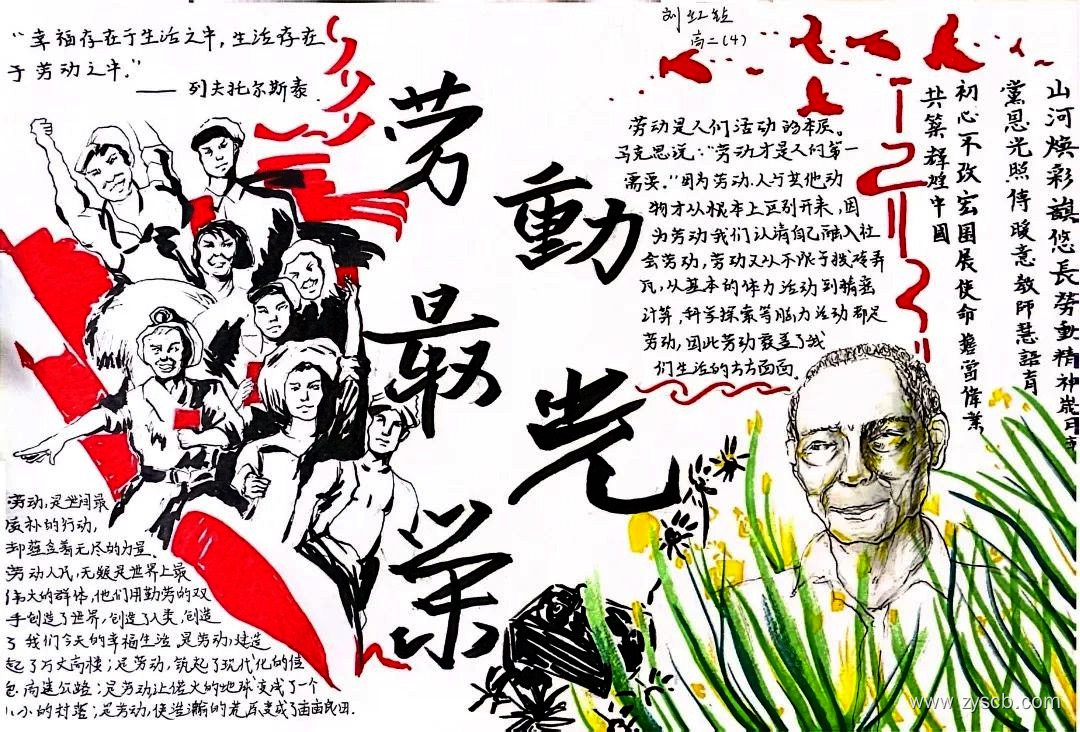 “幸福存在于生活之中,生活存在
于劳动之中.”
—— 列夫托尔斯泰
劳動最光荣
刘红
高二(4)
劳动是人们活动的本质。
马克思说:“劳动才是人的第一
需要。”因为劳动.人与其他动
物才从根本上区别开来,因
为劳动我们认清自己融入社
会劳动,劳动又从不限于搬砖弄
瓦,从基本的体力活动到精密
计算,科学探索等脑力活动都是
劳动,因此劳动覆盖了我
们生活的方方面面.
山河煥彩旗悠長勞動精神
黨恩光照傳暖意教師慧語育
初心不改宏图展使命擔當偉業
共築輝煌中國
劳动,是世间最
质朴的行动,
却蕴含着无尽的力量.
劳动人民,无疑是世界上最
伟大的群体,他们用勤劳的双
手创造了世界,创造了人类,创造
了我们今天的幸福生活.是劳动,建造
起了万丈高楼;是劳动,筑起了现代化的信
息高速公路;是劳动让偌大的地球变成了一个
小小的村落;是劳动,使浩瀚的荒原变成了亩亩良田.
www.zyscb.com